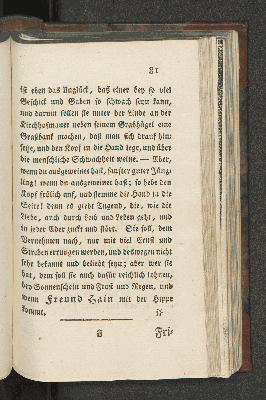 81
ist eben das Unglück, daß einer bey so viel
Geschick und Gaben so schwach seyn kann,
und darum sollen sie unter der Linde an der
Kirchhofmauer neben seinem Grabhügel eine
Grasbank machen, daß man sich drauf hin
setze, und den Kopf in die Hand lege, und über
die menschliche Schwachheit weine. — Aber,
wenn du ausgeweinet hast, sanfter guter Jüng-
ling! wenn du ausgeweinet hast; so hebe den
Kopf frölich auf, und stemme die Hand in die
Seite! denn es giebt Tugend, die, wie die
Liebe, auch durch Leib und Leben geht, und
in jeder Ader zuckt und stört. Sie soll, dem
Vernehmen nach, nur mit viel Ernst und
Streben errungen werden, und deswegen nicht
sehr bekannt und beliebt seyn; aber wer sie
hat, dem soll sie auch dafür reichlich lohnen,
bey Sonnenschein und Frost und Regen, und
wenn Freund Hain mit der Hippe
kommt.
Fri-